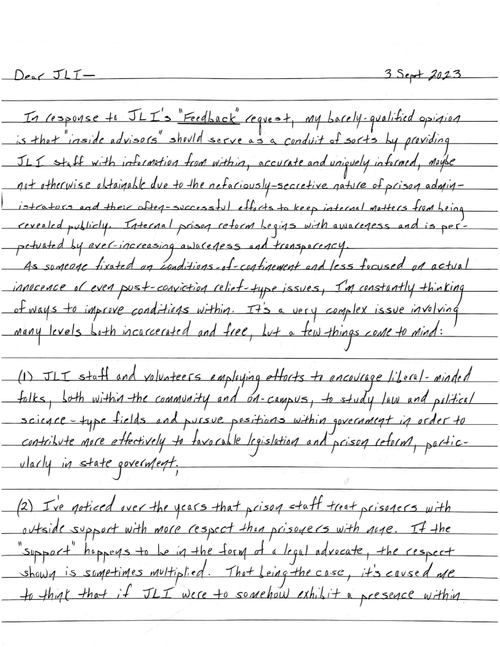 Dear JLI— 3 Sept 2023
In response to JLI's "Feedback" request, my barely-qualified opinion
is that "inside advisors" should serve as a conduit of sorts by providing
JLI staff with information from within, accurate and uniquely informed, maybe
not otherwise obtainable due to the nefariously-secretive nature of prison admin-
istrators and their often-successful efforts to keep internal matters from being
revealed publicly. Internal prison reform begins with awareness and is per-
petuated by ever-increasing awareness and transparency.
As someone fixated on conditions-of-confinement and less focused on actual
innocence or even post-conviction relief-type issues, I'm constantly thinking
of ways to improve conditions within. It's a very complex issue involving
many levels both incarcerated and free, but a few things come to mind:
(1) JLI staff and volunteers employing efforts to encourage liberal-minded
folks, both within the community and on-campus, to study law and political
science-type fields and pursue positions within government in order to
contribute more effectively to favorable legislation and prison reform, partic-
ularly in state goverment;
(2) I've noticed over the years that prison staff treat prisoners with
outside support with more respect than prisoners with none. If the
"support" happens to be in the form of a legal advocate, the respect
shown is sometimes multiplied. That being the case, it's caused me
to think that if JLI were to somehow exhibit a presence within